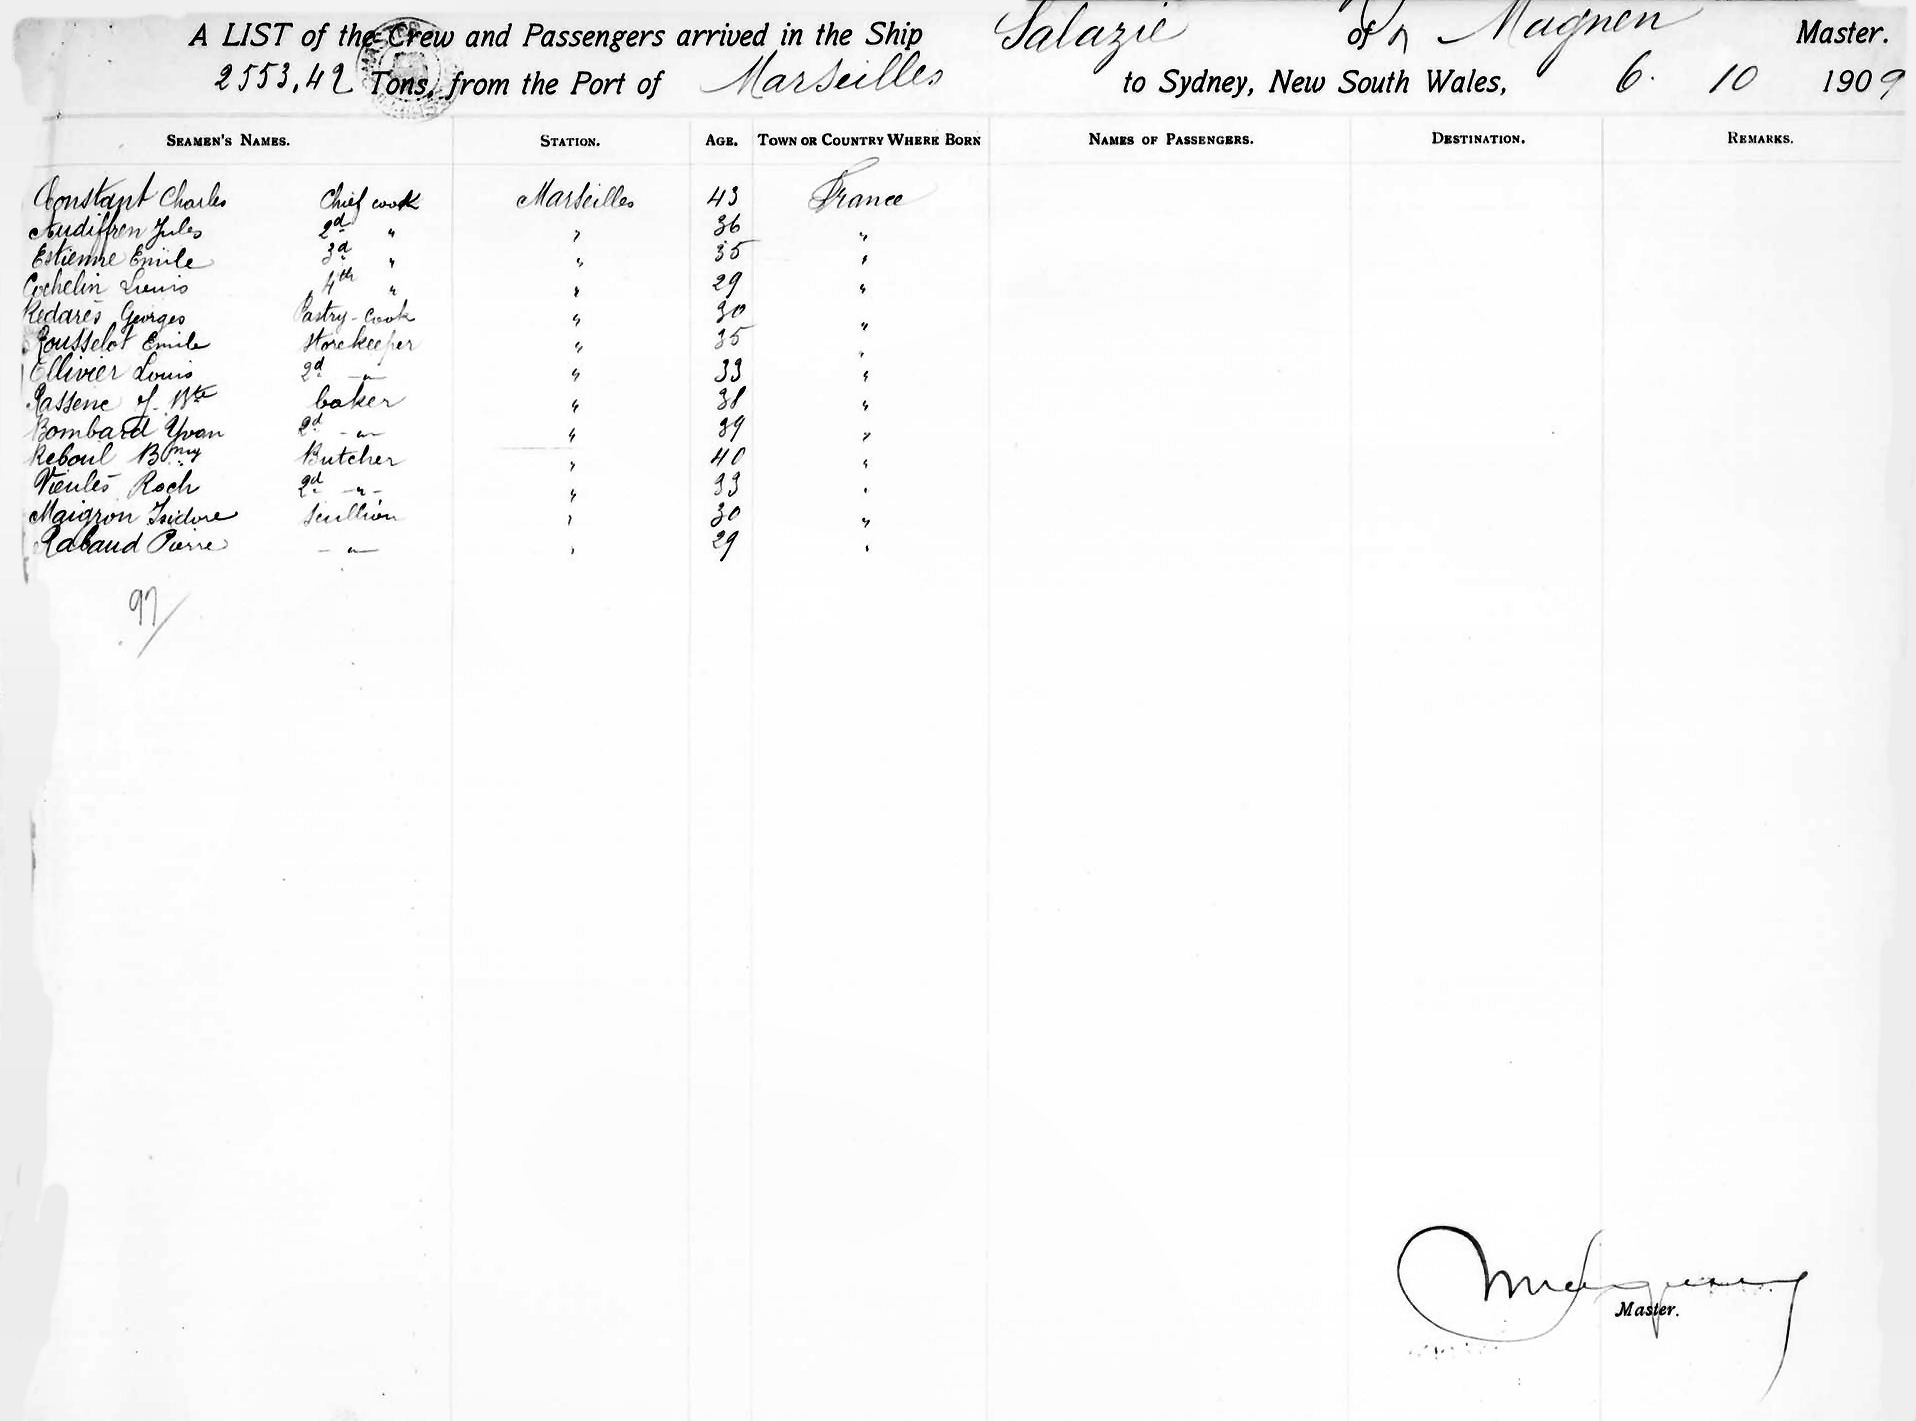 A LIST of the Crew and Passengers arrived in the Ship Salazie of Magnen Master.
2553,42 Tons, from the Port of Marseilles to Sydney, New South Wales, 6. 10 1909
SEAMEN'S NAMES. STATION. AGE. TOWN OR COUNTRY WHERE BORN NAMES OF PASSENGERS. DESTINATION. REMARKS.
Constant Charles Chief cook Marseilles 43 France
Audiffren Jules 2d " " 36 "
Estienne Emile 3d " " 35 "
Cochelin Louis 4th " " 29 "
Redarès Georges Pastry-cook " 30 "
Rousselot Emile Storekeeper " 35 "
Ollivier Louis 2d -"- " 33 "
Passene J. Bte baker " 38 "
Bombard Yvan 2d -"- " 39 "
Reboul Bmy Butcher " 40 "
Vieules Roch 2d -"- " 33 "
Maigron Isidore Scullion " 30 "
Rabaud Pierre -"- " 29 "
97/
Master.